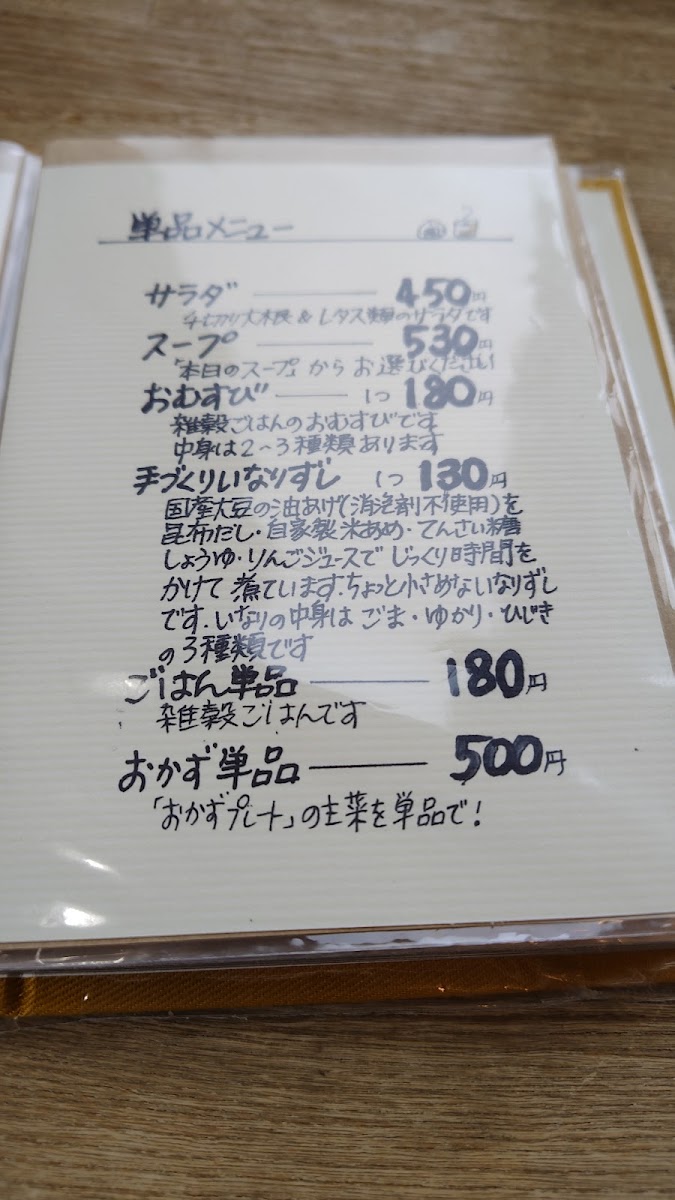 単品メニュー
サラダ 450円
千切り大根&レタス類のサラダです
スープ 530円
「本日のスープ」からお選びください
おむすび 1つ 180円
雑穀ごはんのおむすびです
中身は2~3種類あります
手づくりいなりずし 1つ 130円
国産大豆の油あげ(消泡剤不使用)を
昆布だし・自家製米あめ・てんさい糖
しょうゆ・りんごジュースでじっくり時間を
かけて煮ています.ちょっと小さめないなりずし
です.いなりの中身はごま・ゆかり・ひじき
の3種類です
ごはん単品 180円
雑穀ごはんです
おかず単品 500円
「おかずプレート」の主菜を単品で!